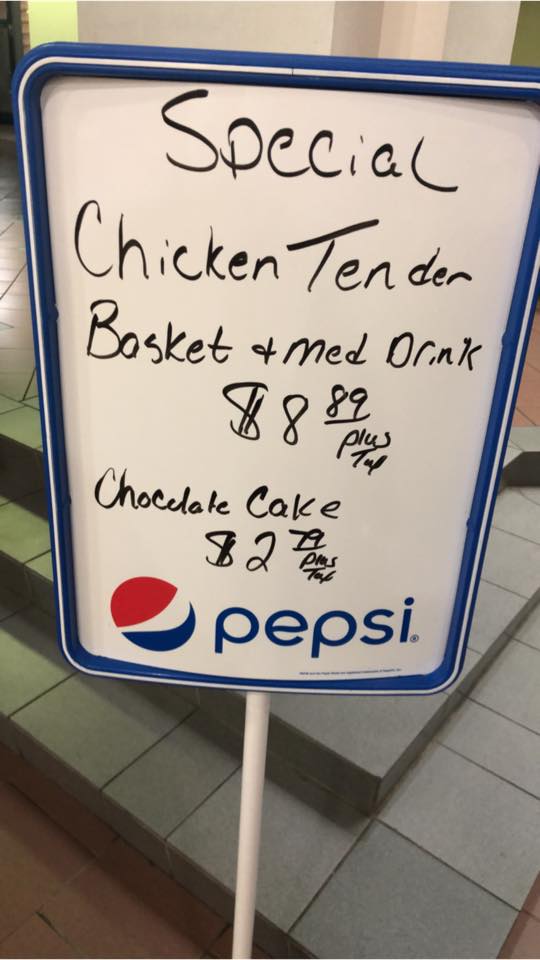 Special
Chicken Tender
Basket + med Drink
$8 89
plus
Tax
Chocolate Cake
$2 79
plus
Tax
pepsi